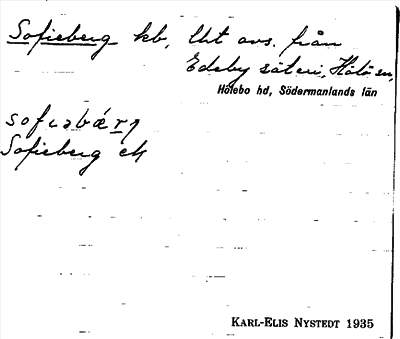 Sofieberg kb, lht avs. från
Edeby säteri, Hölö sn,
Hölebo hd, Södermanlands län
sofiabærj
Sofieberg ek
KARL-ELIS NYSTEDT 1935